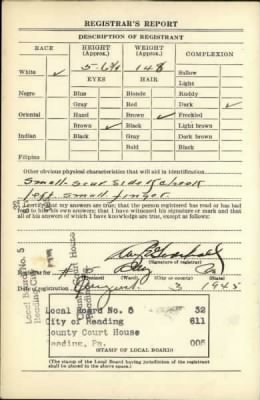 REGISTRAR'S REPORT
DESCRIPTION OF REGISTRANT
RACE
HEIGHT (Approx.)
WEIGHT (Approx.)
COMPLEXION
White ✓
148
Sallow
Light
EYES
HAIR
Ruddy
Negro
Blue
Blonde
Dark ✓
Gray
Red
Freckled
Oriental
Hazel
Brown ✓
Light brown
Brown ✓
Black
Dark brown
Indian
Black
Gray
Black
Bald
Filipino
Other obvious physical characteristics that will aid in identification
small scar
left small finger
I certify that my answers are true; that the person registered has read or has had
read to him his own answers; that I have witnessed his signature or mark and that
all of his answers of which I have knowledge are true, except as follows:
Local Board No. 5
Reading
Court House
(Signature of registrar)
Registrar for
5
Pa
(City or county)
(State)
Date of registration
August 3 1945
Local Board No. 5 32
City of Reading 611
County Court House
Reading, Pa. 005
(STAMP OF LOCAL BOARD)
(The stamp of the Local Board having jurisdiction of the registrant
shall be placed in the above space.)